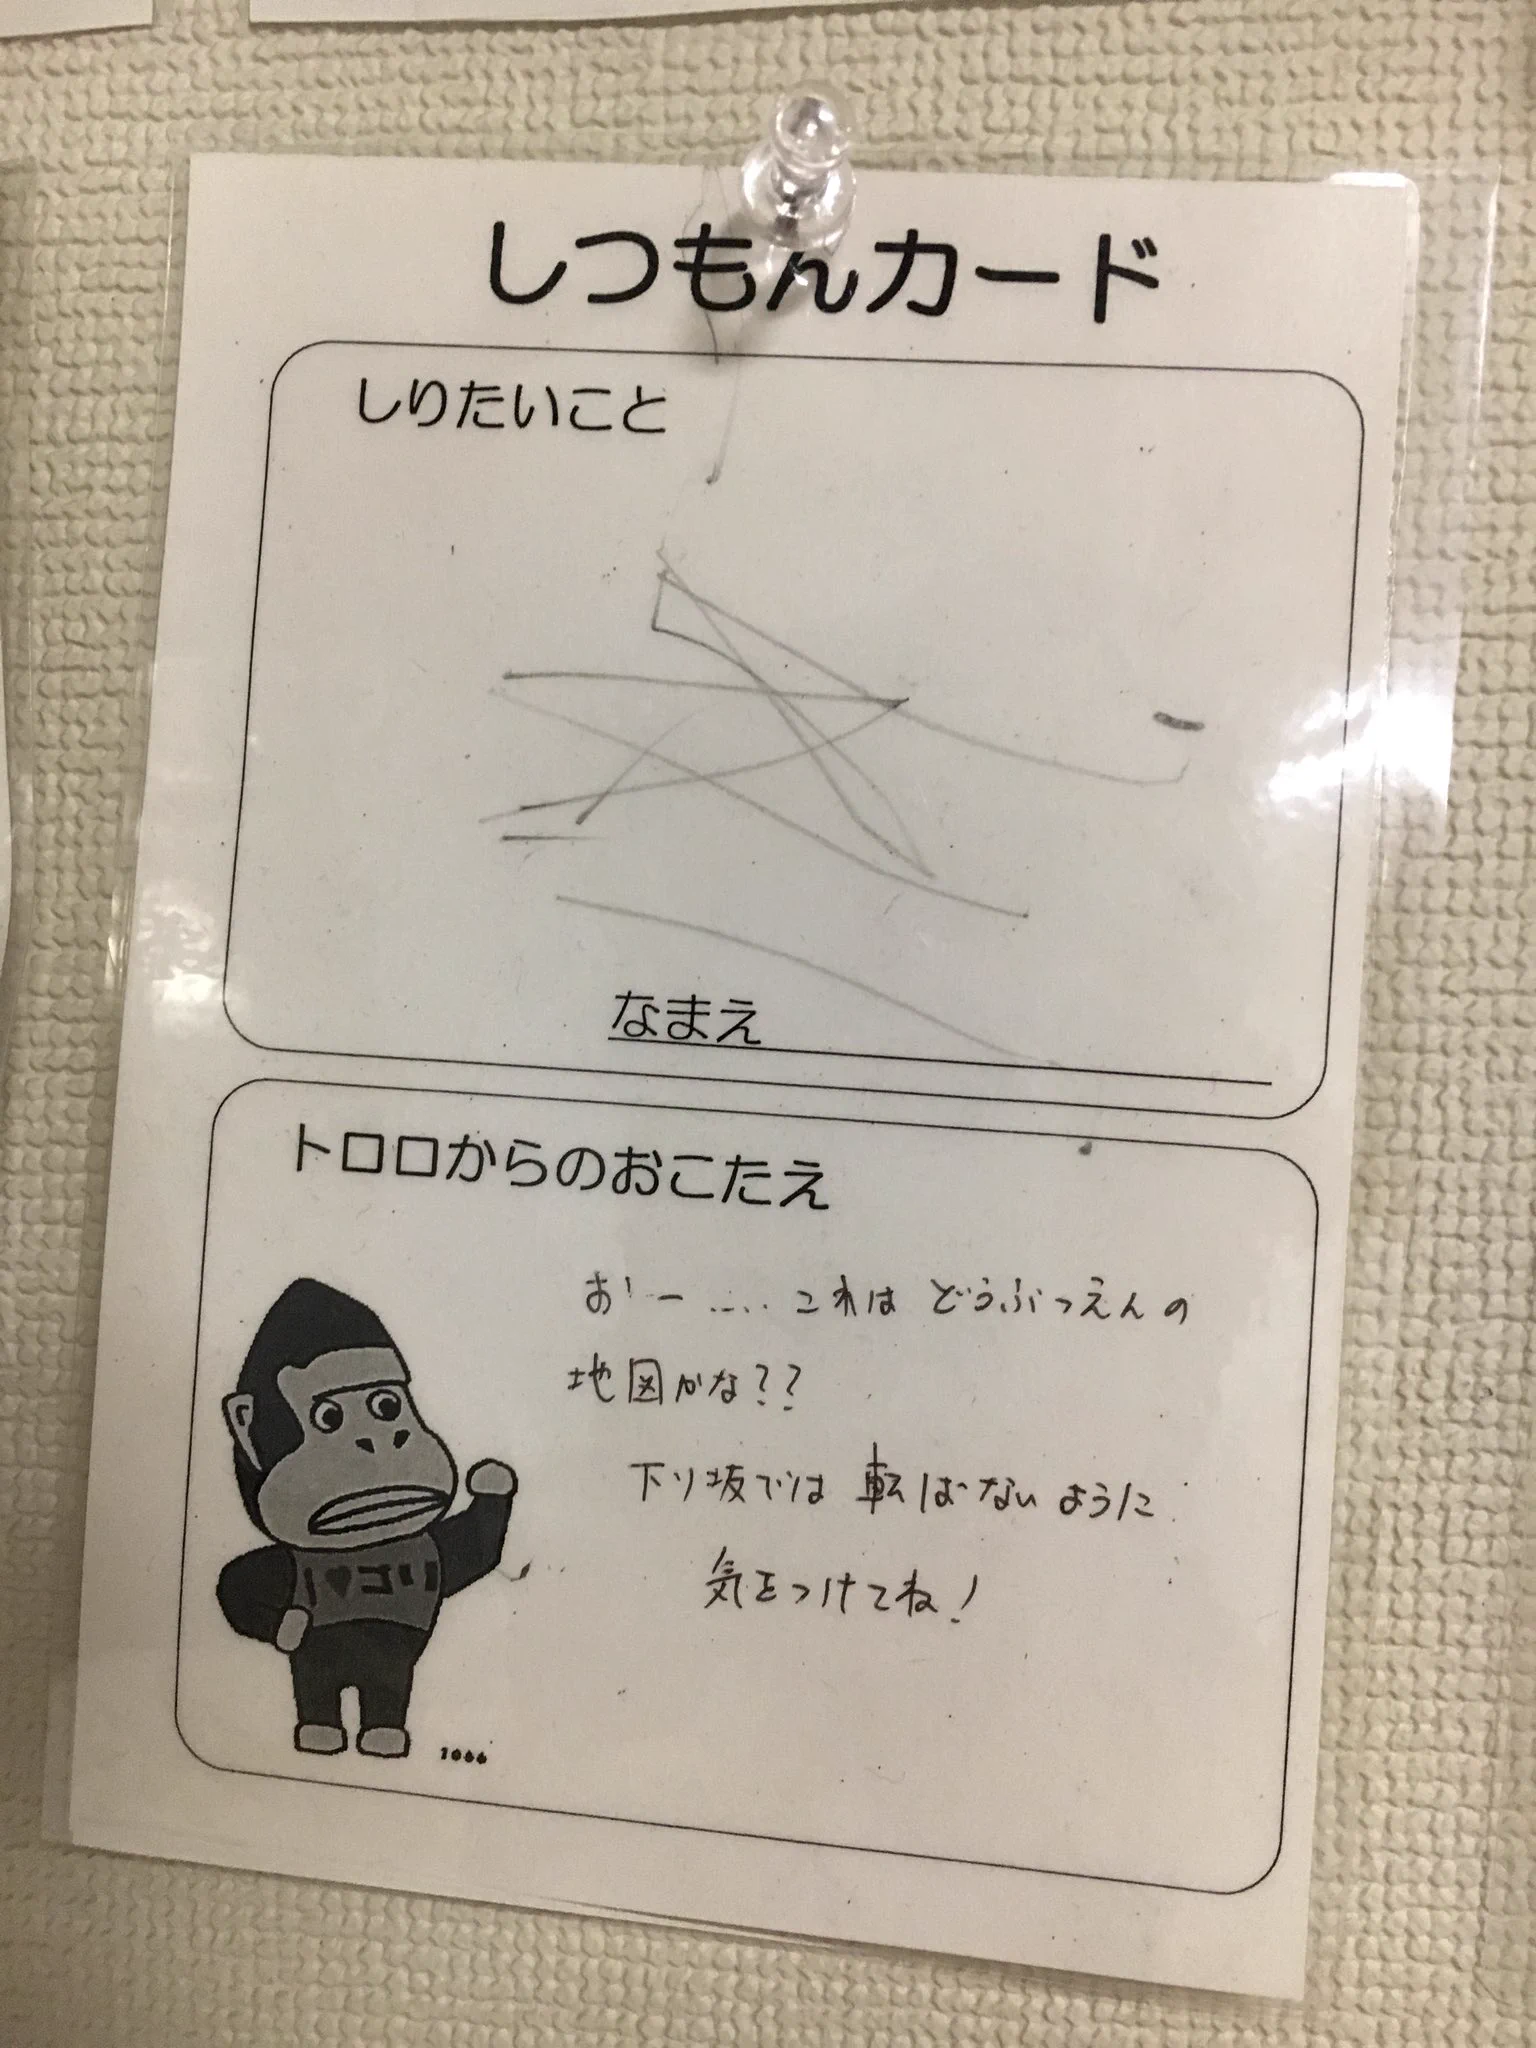 しつもんカード
しりたいこと
なまえ
トロロからのおこたえ
おぉー……これは どうぶつえんの
地図かな??
下り坂では 転ばないように
気をつけてね!
I♥ゴリ
1066